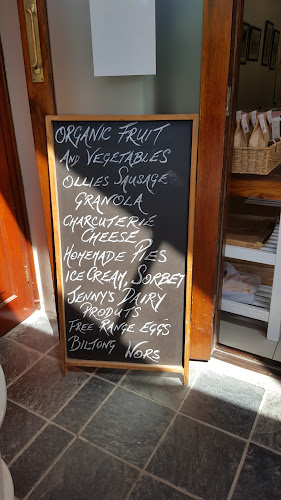 ORGANIC FRUIT
AND VEGETABLES
OLLIES SAUSAGE
GRANOLA
CHARCUTERIE
CHEESE
HOMEMADE PIES
ICE CREAM, SORBET
JENNY'S DAIRY
PRODUTS
FREE RANGE EGGS
BILTONG WORS